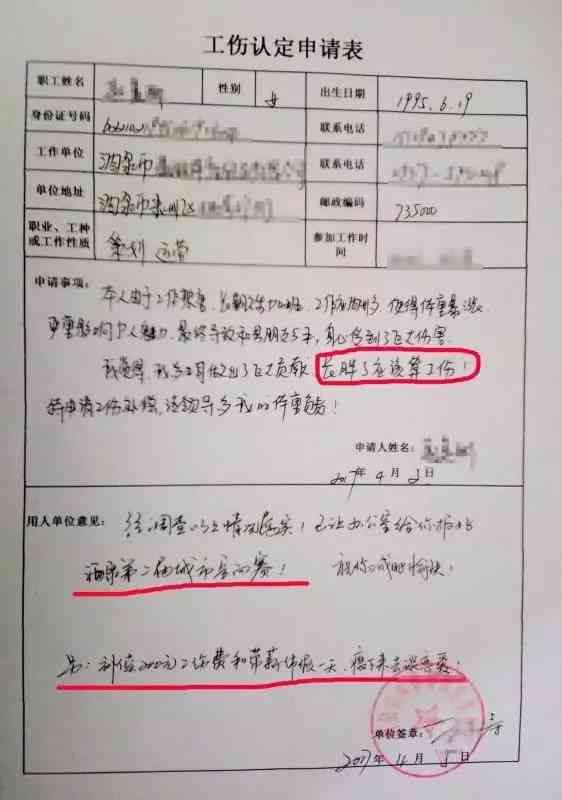 工伤认定申请表
职工姓名 性别 女 出生日期 1995.6.19
身份证号码 联系电话
工作单位 酒泉市 联系电话
单位地址 酒泉市肃州区 邮政编码 735000
职业、工种或工作性质 策划 运营 参加工作时间
申请事项:本人由于工作强度、长期熬夜加班、工作应酬多,使得体重暴涨,
严重影响个人魅力,最终导致和男朋友分手,身心受到了巨大伤害.
我觉得,我为公司做出了巨大贡献,长胖了应该算工伤!
特申请工伤补偿,请领导为我的体重负责!
申请人姓名:
2017年4月2日
用人单位意见: 经调查以上情况属实!已让办公室给你报名
酒泉第二届城市定向赛! 祝你减肥愉快!
另:补偿2000元工伤费和带薪休假一天,瘦下来去谈恋爱!
单位签章:
2017年4月5日